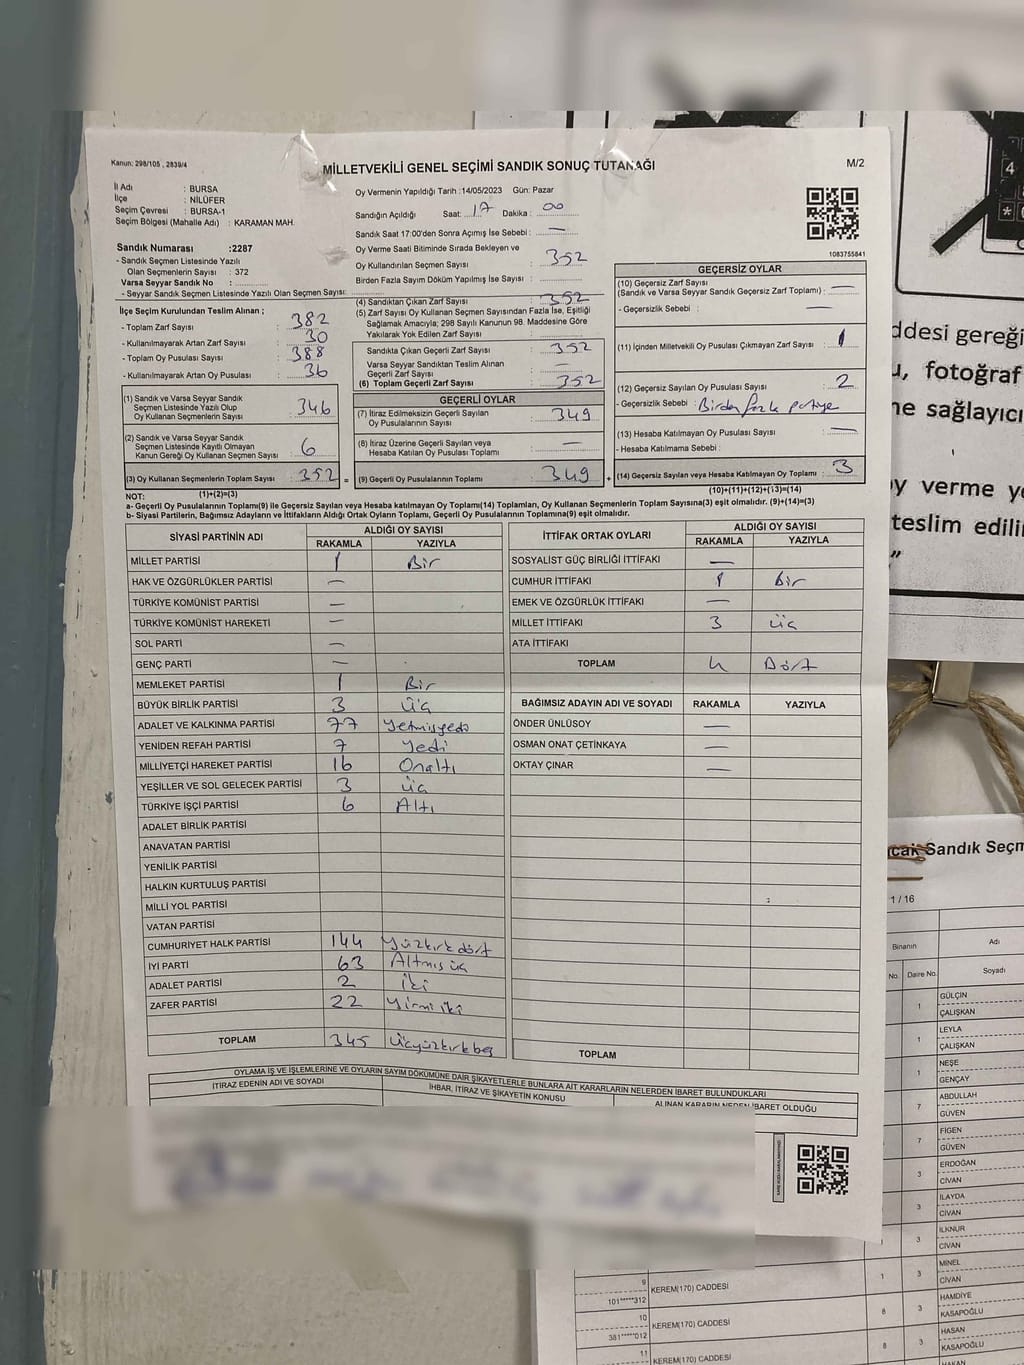 Kanun: 298/105 , 2839/4
MİLLETVEKİLİ GENEL SEÇİMİ SANDIK SONUÇ TUTANAĞI
M/2
İl Adı : BURSA
İlçe : NİLÜFER
Seçim Çevresi : BURSA-1
Seçim Bölgesi (Mahalle Adı) : KARAMAN MAH.
Sandık Numarası :2287
- Sandık Seçmen Listesinde Yazılı
Olan Seçmenlerin Sayısı : 372
Varsa Seyyar Sandık No :
- Seyyar Sandık Seçmen Listesinde Yazılı Olan Seçmen Sayısı:
İlçe Seçim Kurulundan Teslim Alınan ;
- Toplam Zarf Sayısı : 382
- Kullanılmayarak Artan Zarf Sayısı : 30
- Toplam Oy Pusulası Sayısı : 388
- Kullanılmayarak Artan Oy Pusulası : 36
(1) Sandık ve Varsa Seyyar Sandık
Seçmen Listesinde Yazılı Olup
Oy Kullanan Seçmenlerin Sayısı : 346
(2) Sandık ve Varsa Seyyar Sandık
Seçmen Listesinde Kayıtlı Olmayan
Kanun Gereği Oy Kullanan Seçmen Sayısı : 6
(3) Oy Kullanan Seçmenlerin Toplam Sayısı : 352 =
(1)+(2)=(3)
Oy Vermenin Yapıldığı Tarih :14/05/2023 Gün: Pazar
Sandığın Açıldığı Saat: 17 Dakika : 00
Sandık Saat 17:00'den Sonra Açımış İse Sebebi : —
Oy Verme Saati Bitiminde Sırada Bekleyen ve
Oy Kullandırılan Seçmen Sayısı : 352
Birden Fazla Sayım Döküm Yapılmış İse Sayısı :
(4) Sandıktan Çıkan Zarf Sayısı : 352
(5) Zarf Sayısı Oy Kullanan Seçmen Sayısından Fazla İse, Eşitliği
Sağlamak Amacıyla; 298 Sayılı Kanunun 98. Maddesine Göre
Yakılarak Yok Edilen Zarf Sayısı : —
Sandıkta Çıkan Geçerli Zarf Sayısı : 352
Varsa Seyyar Sandıktan Teslim Alınan
Geçerli Zarf Sayısı : —
(6) Toplam Geçerli Zarf Sayısı : 352
GEÇERLİ OYLAR
(7) İtiraz Edilmeksizin Geçerli Sayılan
Oy Pusulalarının Sayısı : 349
(8) İtiraz Üzerine Geçerli Sayılan veya
Hesaba Katılan Oy Pusulası Toplamı : —
(9) Geçerli Oy Pusulalarının Toplamı : 349 +
1083755841
GEÇERSİZ OYLAR
(10) Geçersiz Zarf Sayısı
(Sandık ve Varsa Seyyar Sandık Geçersiz Zarf Toplamı) : —
- Geçersizlik Sebebi : —
(11) İçinden Milletvekili Oy Pusulası Çıkmayan Zarf Sayısı : 1
(12) Geçersiz Sayılan Oy Pusulası Sayısı : 2
- Geçersizlik Sebebi : Birden fazla partiye
(13) Hesaba Katılmayan Oy Pusulası Sayısı : —
- Hesaba Katılmama Sebebi :
(14) Geçersiz Sayılan veya Hesaba Katılmayan Oy Toplamı : 3
(10)+(11)+(12)+(13)=(14)
NOT:
a- Geçerli Oy Pusulalarının Toplamı(9) ile Geçersiz Sayılan veya Hesaba katılmayan Oy Toplamı(14) Toplamları, Oy Kullanan Seçmenlerin Toplam Sayısına(3) eşit olmalıdır. (9)+(14)=(3)
b- Siyasi Partilerin, Bağımsız Adayların ve İttifakların Aldığı Ortak Oyların Toplamı, Geçerli Oy Pusulalarının Toplamına(9) eşit olmalıdır.
SİYASİ PARTİNİN ADI ALDIĞI OY SAYISI
RAKAMLA YAZIYLA
MİLLET PARTİSİ 1 Bir
HAK VE ÖZGÜRLÜKLER PARTİSİ —
TÜRKİYE KOMÜNİST PARTİSİ —
TÜRKİYE KOMÜNİST HAREKETİ —
SOL PARTİ —
GENÇ PARTİ —
MEMLEKET PARTİSİ 1 Bir
BÜYÜK BİRLİK PARTİSİ 3 üç
ADALET VE KALKINMA PARTİSİ 77 yetmişyedi
YENİDEN REFAH PARTİSİ 7 yedi
MİLLİYETÇİ HAREKET PARTİSİ 16 Onaltı
YEŞİLLER VE SOL GELECEK PARTİSİ 3 üç
TÜRKİYE İŞÇİ PARTİSİ 6 Altı
ADALET BİRLİK PARTİSİ
ANAVATAN PARTİSİ
YENİLİK PARTİSİ
HALKIN KURTULUŞ PARTİSİ
MİLLİ YOL PARTİSİ
VATAN PARTİSİ
CUMHURİYET HALK PARTİSİ 144 yüzkırkdört
İYİ PARTİ 63 Altmış üç
ADALET PARTİSİ 2 İki
ZAFER PARTİSİ 22 yirmi iki
TOPLAM 345 üçyüzkırkbeş
İTTİFAK ORTAK OYLARI ALDIĞI OY SAYISI
RAKAMLA YAZIYLA
SOSYALİST GÜÇ BİRLİĞİ İTTİFAKI —
CUMHUR İTTİFAKI 1 Bir
EMEK VE ÖZGÜRLÜK İTTİFAKI —
MİLLET İTTİFAKI 3 üç
ATA İTTİFAKI
TOPLAM 4 Dört
BAĞIMSIZ ADAYIN ADI VE SOYADI RAKAMLA YAZIYLA
ÖNDER ÜNLÜSOY —
OSMAN ONAT ÇETİNKAYA —
OKTAY ÇINAR —
TOPLAM
OYLAMA İŞ VE İŞLEMLERİNE VE OYLARIN SAYIM DÖKÜMÜNE DAİR ŞİKAYETLERLE BUNLARA AİT KARARLARIN NELERDEN İBARET BULUNDUKLARI
İTİRAZ EDENİN ADI VE SOYADI İHBAR, İTİRAZ VE ŞİKAYETİN KONUSU ALINAN KARARIN NEDEN İBARET OLDUĞU
4
*
ddesi gereği
, fotoğraf
ne sağlayıcı
oy verme ye
teslim edilir
”
cak Sandık Seçm
1 / 16
Binanın Adı
No. Daire No. Soyadı
1 GÜLÇİN
ÇALIŞKAN
1 LEYLA
ÇALIŞKAN
1 NEŞE
GENÇAY
7 ABDULLAH
GÜVEN
7 FİGEN
GÜVEN
3 ERDOĞAN
CİVAN
3 İLAYDA
CİVAN
3 İLKNUR
CİVAN
9 KEREM(170) CADDESİ 1 3 MİNEL
101*****312 CİVAN
10 KEREM(170) CADDESİ 8 3 HAMDİYE
381*****012 KASAPOĞLU
11 KEREM(170) CADDESİ 8 3 HASAN
KASAPOĞLU